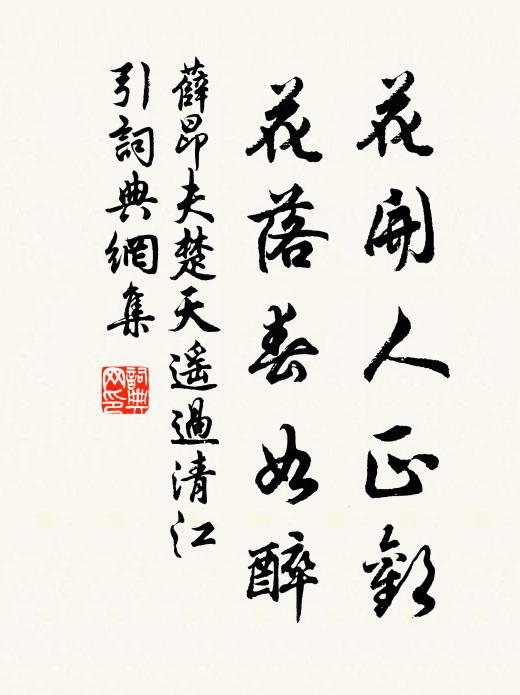 花開人正歡
花落春如醉
薛昂夫楚天遥過清江
引詞典網集
詞典
网印